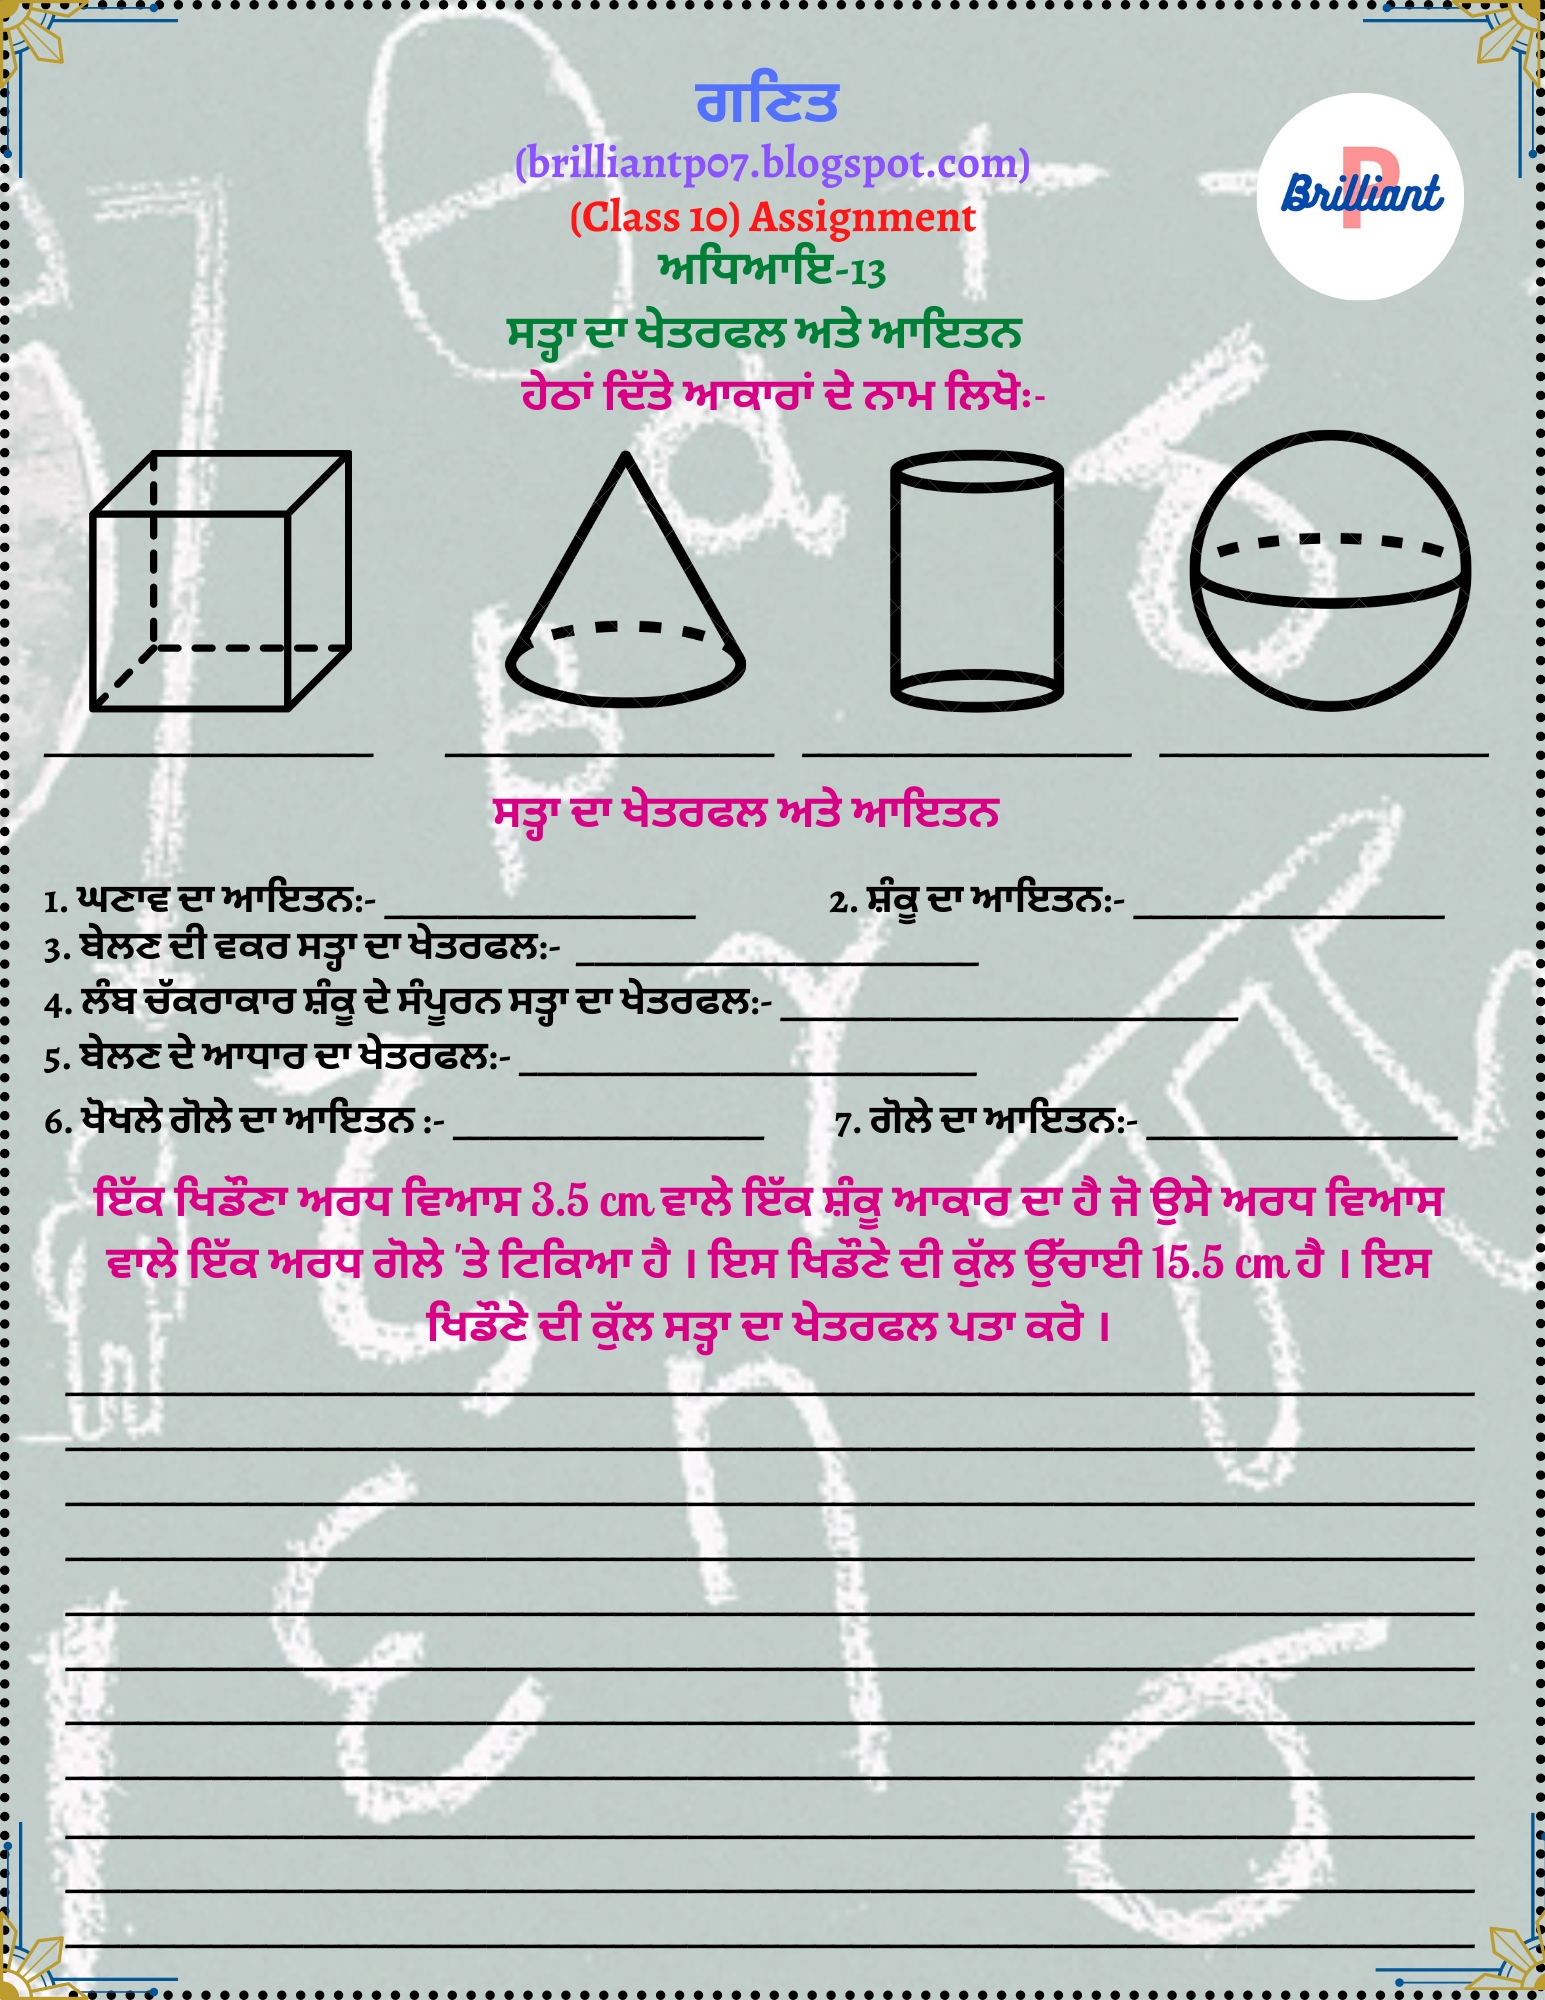 ਗਣਿਤ
(brilliantp07.blogspot.com)
(Class 10) Assignment
P
Brilliant
ਅਧਿਆਇ-13
ਸਤ੍ਹਾ ਦਾ ਖੇਤਰਫਲ ਅਤੇ ਆਇਤਨ
ਹੇਠਾਂ ਦਿੱਤੇ ਆਕਾਰਾਂ ਦੇ ਨਾਮ ਲਿਖੋਃ-
ਸਤ੍ਹਾ ਦਾ ਖੇਤਰਫਲ ਅਤੇ ਆਇਤਨ
1. ਘਣਾਵ ਦਾ ਆਇਤਨ:- _________________ 2. ਸ਼ੰਕੂ ਦਾ ਆਇਤਨ:- _________________
3. ਬੇਲਣ ਦੀ ਵਕਰ ਸਤ੍ਹਾ ਦਾ ਖੇਤਰਫਲ:- ______________________
4. ਲੰਬ ਚੱਕਰਾਕਾਰ ਸ਼ੰਕੂ ਦੇ ਸੰਪੂਰਨ ਸਤ੍ਹਾ ਦਾ ਖੇਤਰਫਲ:- _________________________
5. ਬੇਲਣ ਦੇ ਆਧਾਰ ਦਾ ਖੇਤਰਫਲ:- _________________________
6. ਖੋਖਲੇ ਗੋਲੇ ਦਾ ਆਇਤਨ :- _________________ 7. ਗੋਲੇ ਦਾ ਆਇਤਨ:- _________________
ਇੱਕ ਖਿਡੌਣਾ ਅਰਧ ਵਿਆਸ 3.5 cm ਵਾਲੇ ਇੱਕ ਸ਼ੰਕੂ ਆਕਾਰ ਦਾ ਹੈ ਜੋ ਉਸੇ ਅਰਧ ਵਿਆਸ
ਵਾਲੇ ਇੱਕ ਅਰਧ ਗੋਲੇ 'ਤੇ ਟਿਕਿਆ ਹੈ । ਇਸ ਖਿਡੌਣੇ ਦੀ ਕੁੱਲ ਉੱਚਾਈ 15.5 cm ਹੈ । ਇਸ
ਖਿਡੌਣੇ ਦੀ ਕੁੱਲ ਸਤ੍ਹਾ ਦਾ ਖੇਤਰਫਲ ਪਤਾ ਕਰੋ ।